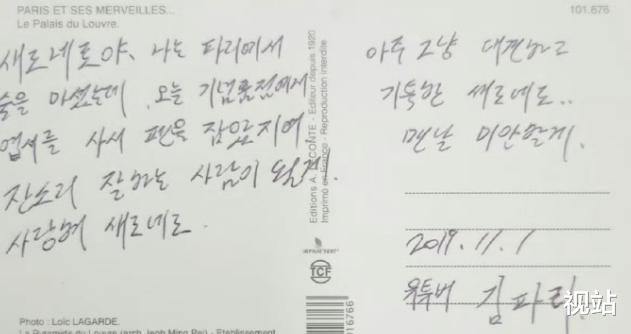 PARIS ET SES MERVEILLES...
Le Palais du Louvre.
101.676
새로네로야, 나는 파리에서
술을 마셨는데, 오늘 기념품점에서
엽서를 사서 펜을 잡았지여.
잔소리 잘하는 사람이 될게.
사랑해 새로네로.
아주 그냥 대견하고
기특한 새로네로..
맨날 미안할게.
2019.11.1
유튜버 김파리
Editions A. LECONTE - Editeur depuis 1920
Imprimé en France - Reproduction interdite
IMPRIM'VERT
TCF
16766
Photo : Loïc LAGARDE.
视站